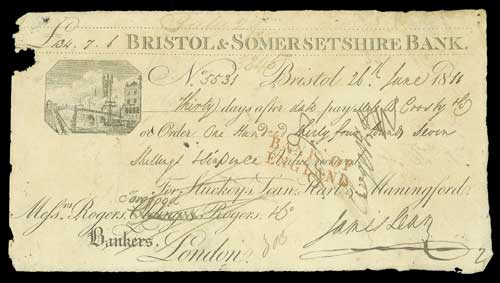 £134. 7. 8 BRISTOL & SOMERSETSHIRE BANK.
No 5531 Bristol 26th June 1811
Thirty days after date pay to B Crosby & Co
or Order One Hundred thirty four pounds Seven
Shillings & Pence
BANK OF
ENGLAND
For Stuckey's Lean, Hart & Maningford
Towgood
Messrs Rogers, Rogers, & Co
Bankers, London
James Lean